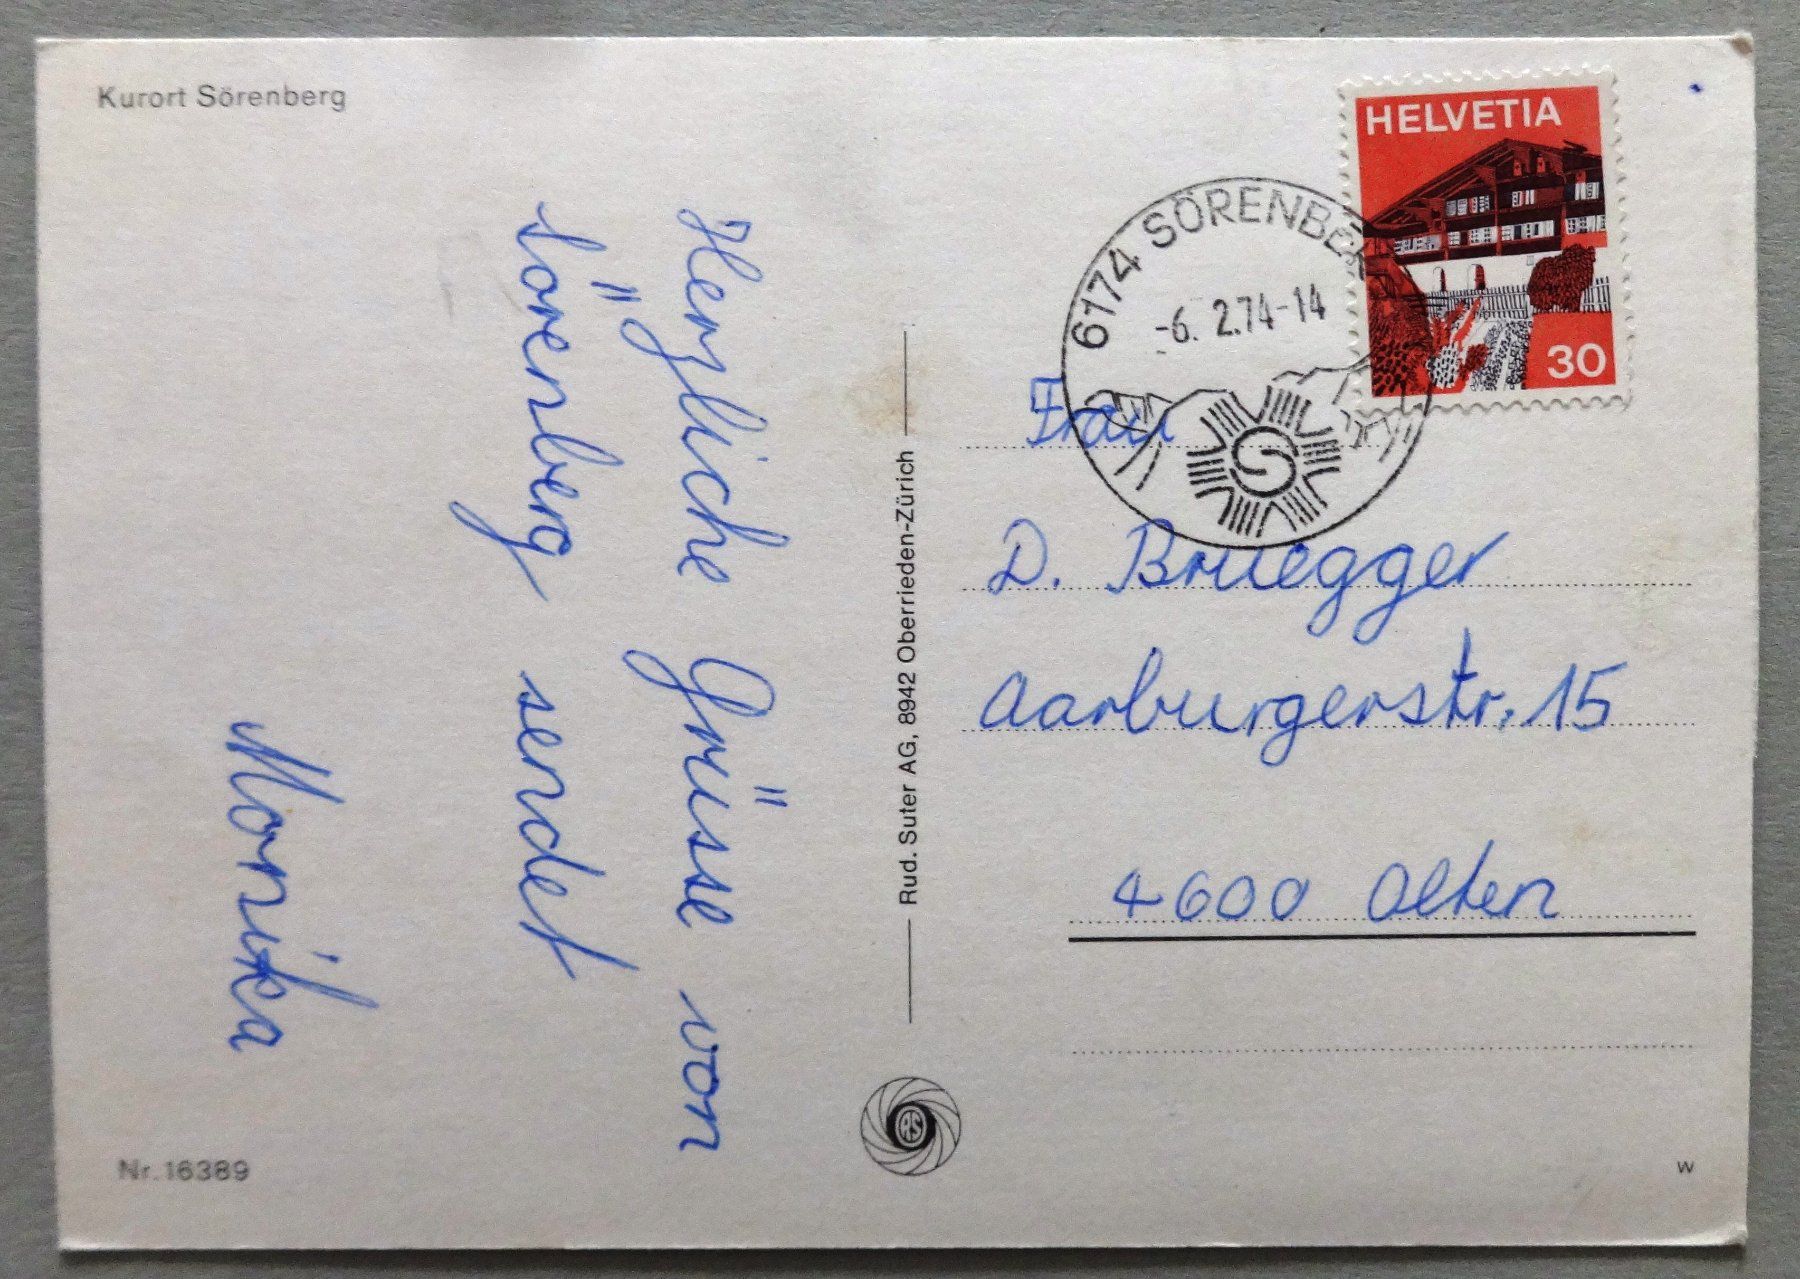 Kurort Sörenberg
Herzliche Grüsse von
Sörenberg sendet
Monika
Nr. 16389
Rud. Suter AG, 8942 Oberrieden-Zürich
RS
HELVETIA
30
6174 SÖRENBERG
-6. 2.74-14
Frau
D. Bruegger
Aarburgerstr. 15
4600 Olten
W